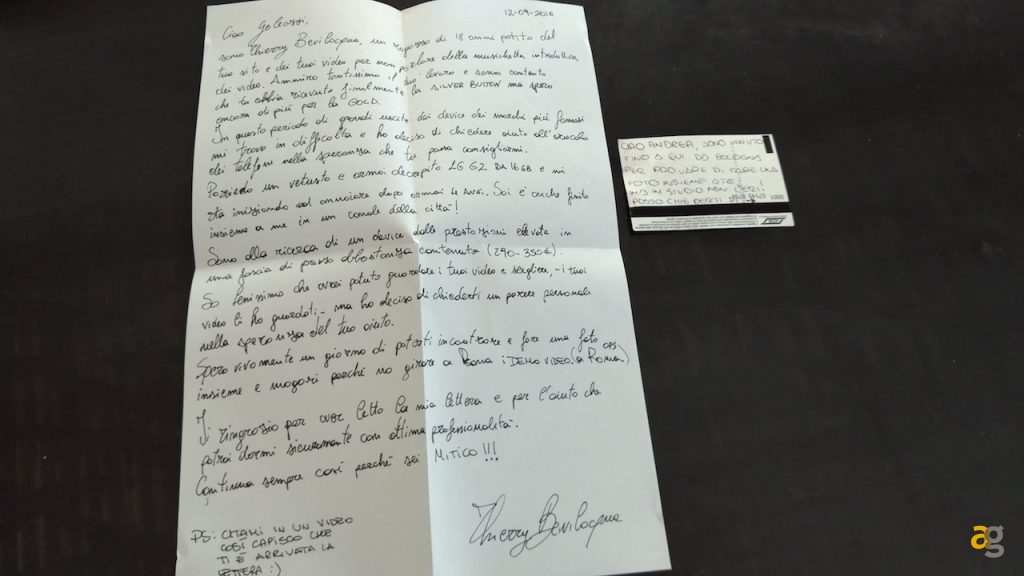 12-09-2016
Ciao Galeazzi,
sono Thierry Bevilacqua, un ragazzo di 18 anni patito del
tuo sito e dei tuoi video per non parlare della musichetta introduttiva
dei video. Ammiro tantissimo il tuo lavoro e sono contento
che tu abbia ricevuto finalmente la SILVER BUTTON ma spero
ancora di più per la GOLD.
In questo periodo di grandi uscite dei device dei marchi più famosi
mi trovo in difficoltà e ho deciso di chiedere aiuto all'oracolo
dei telefoni nella speranza che tu possa consigliarmi.
Possiedo un vetusto e ormai decrepito LG G2 da 16GB e mi
sta iniziando ad annoiare dopo ormai 4 anni. Sai è anche finito
insieme a me in un canale della città!
Sono alla ricerca di un device dalle prestazioni elevate in
una fascia di prezzo abbastanza contenuta (290-350€).
So benissimo che avrei potuto guardare i tuoi video e scegliere, i tuoi
video li ho guardati, ma ho deciso di chiederti un parere personale
nella speranza del tuo aiuto.
Spero vivamente un giorno di poterti incontrare e fare una foto
insieme e magari perché no girare a Roma i DEMO VIDEO (GPS a Roma)
Ti ringrazio per aver letto la mia lettera e per l'aiuto che
potrai darmi sicuramente con ottima professionalità.
Continua sempre così perché sei MITICO!!!
Thierry Bevilacqua
PS: CITAMI IN UN VIDEO
COSÌ CAPISCO CHE
TI È ARRIVATA LA
LETTERA :)
CIAO ANDREA, SONO VENUTO
FINO A QUI DA BOLOGNA
PER PROVARE DI FARE UNA
FOTO INSIEME A TE
MA IN STUDIO NON C'ERI
POSSO
ag